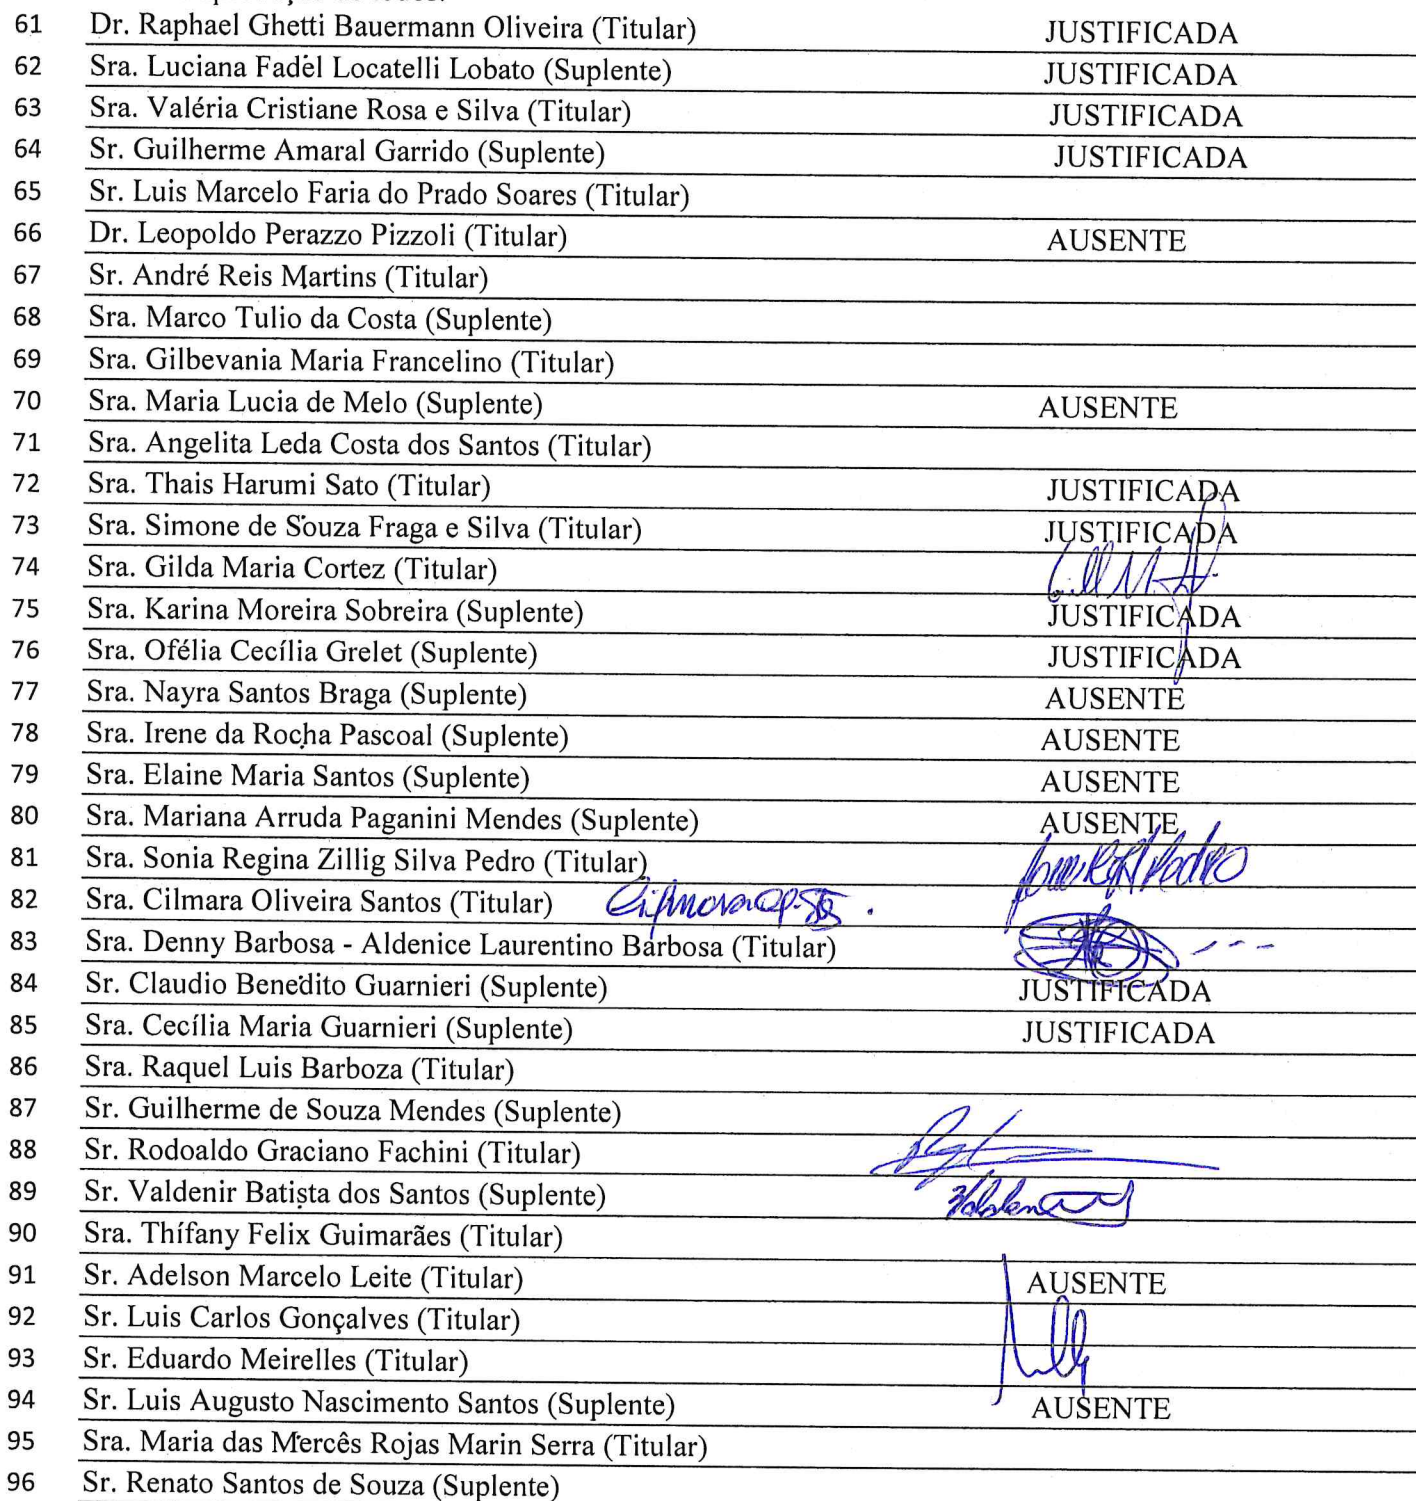 61 Dr. Raphael Ghetti Bauermann Oliveira (Titular) JUSTIFICADA
62 Sra. Luciana Fadel Locatelli Lobato (Suplente) JUSTIFICADA
63 Sra. Valéria Cristiane Rosa e Silva (Titular) JUSTIFICADA
64 Sr. Guilherme Amaral Garrido (Suplente) JUSTIFICADA
65 Sr. Luis Marcelo Faria do Prado Soares (Titular)
66 Dr. Leopoldo Perazzo Pizzoli (Titular) AUSENTE
67 Sr. André Reis Martins (Titular)
68 Sra. Marco Tulio da Costa (Suplente)
69 Sra. Gilbevania Maria Francelino (Titular)
70 Sra. Maria Lucia de Melo (Suplente) AUSENTE
71 Sra. Angelita Leda Costa dos Santos (Titular)
72 Sra. Thais Harumi Sato (Titular) JUSTIFICADA
73 Sra. Simone de Souza Fraga e Silva (Titular) JUSTIFICADA
74 Sra. Gilda Maria Cortez (Titular)
75 Sra. Karina Moreira Sobreira (Suplente) JUSTIFICADA
76 Sra. Ofélia Cecília Grelet (Suplente) JUSTIFICADA
77 Sra. Nayra Santos Braga (Suplente) AUSENTE
78 Sra. Irene da Rocha Pascoal (Suplente) AUSENTE
79 Sra. Elaine Maria Santos (Suplente) AUSENTE
80 Sra. Mariana Arruda Paganini Mendes (Suplente) AUSENTE
81 Sra. Sonia Regina Zillig Silva Pedro (Titular)
82 Sra. Cilmara Oliveira Santos (Titular)
83 Sra. Denny Barbosa - Aldenice Laurentino Barbosa (Titular)
84 Sr. Claudio Benedito Guarnieri (Suplente) JUSTIFICADA
85 Sra. Cecília Maria Guarnieri (Suplente) JUSTIFICADA
86 Sra. Raquel Luis Barboza (Titular)
87 Sr. Guilherme de Souza Mendes (Suplente)
88 Sr. Rodoaldo Graciano Fachini (Titular)
89 Sr. Valdenir Batista dos Santos (Suplente)
90 Sra. Thífany Felix Guimarães (Titular)
91 Sr. Adelson Marcelo Leite (Titular) AUSENTE
92 Sr. Luis Carlos Gonçalves (Titular)
93 Sr. Eduardo Meirelles (Titular)
94 Sr. Luis Augusto Nascimento Santos (Suplente) AUSENTE
95 Sra. Maria das Mercês Rojas Marin Serra (Titular)
96 Sr. Renato Santos de Souza (Suplente)